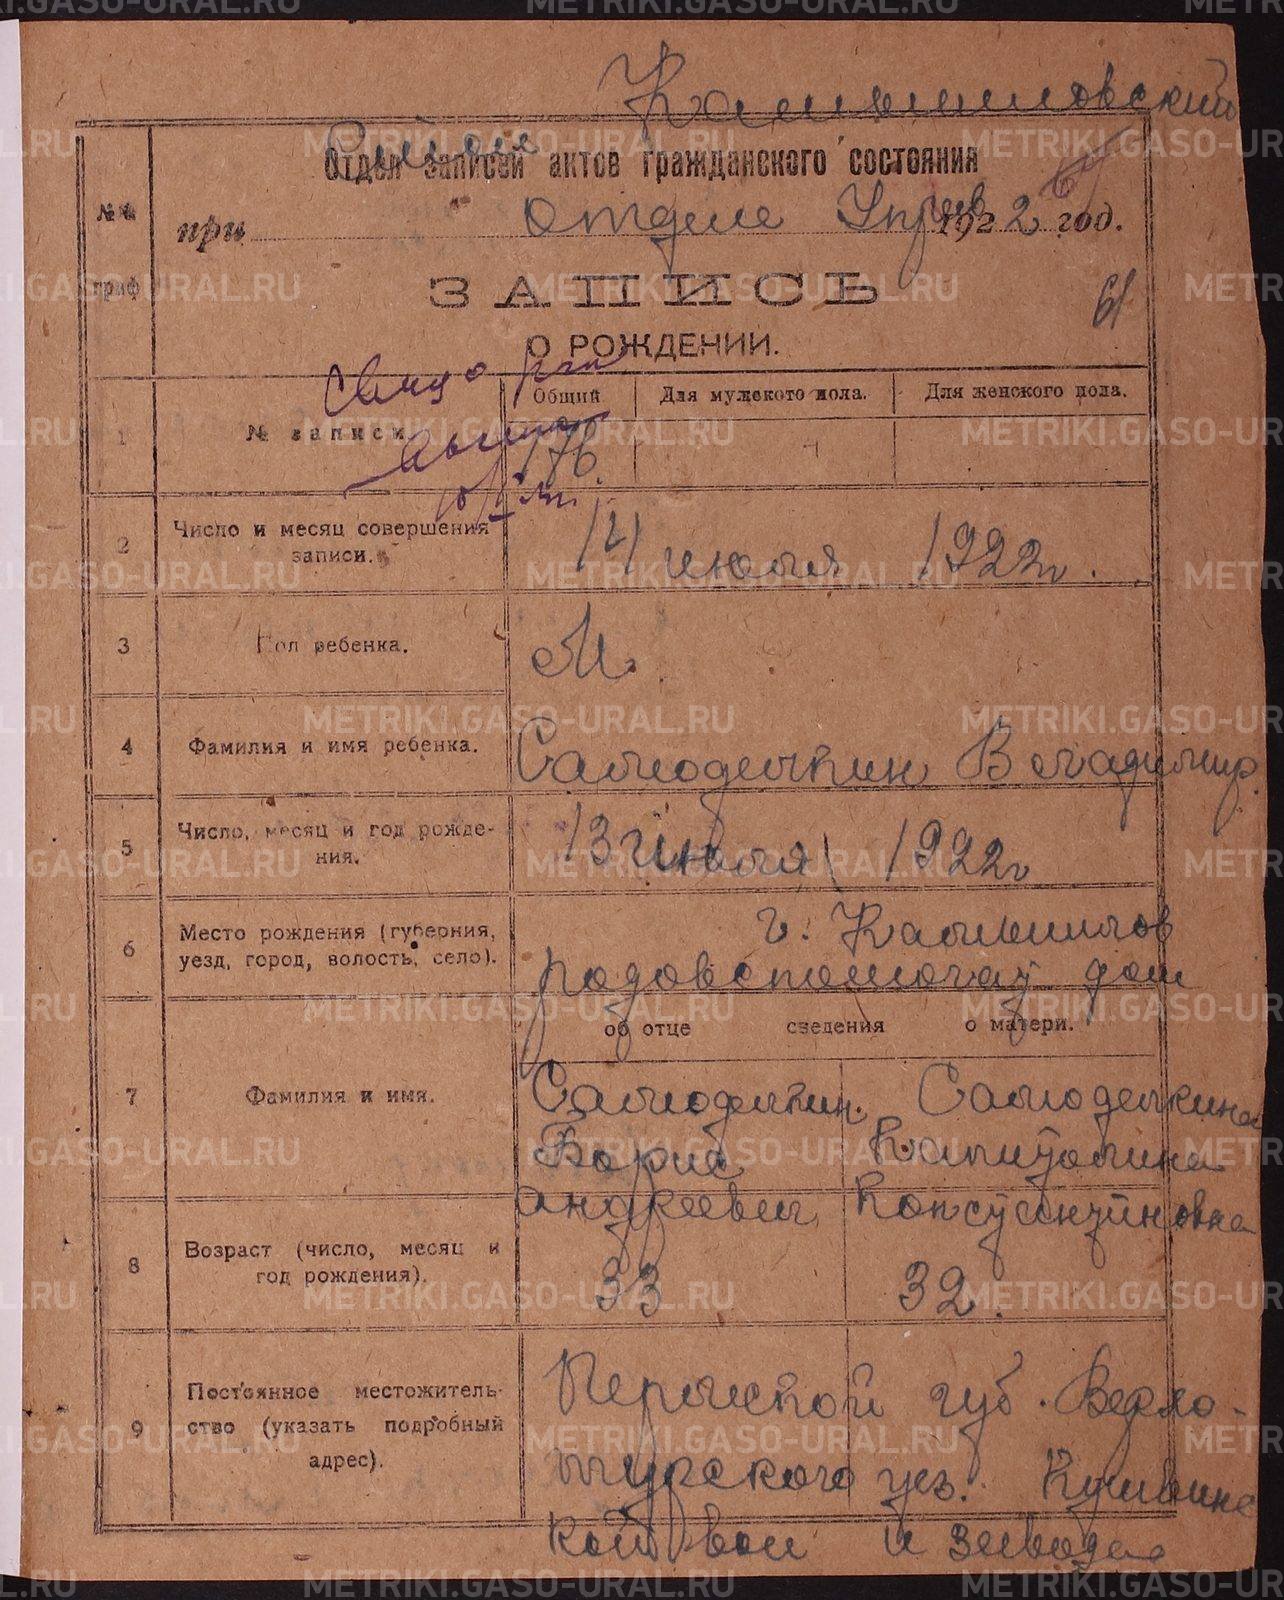 Камышловский
Отдел записей актов гражданского состояния
№№ граф
при отделе Управ 1922 год.
ЗАПИСЬ
61
О РОЖДЕНИИ.
Общий Для мужского пола. Для женского пола.
1 № записи 176
2 Число и месяц совершения записи. 14 июля 1922 г.
3 Пол ребенка. М.
4 Фамилия и имя ребенка. Самоделкин Владимир
5 Число, месяц и год рождения. 13 июля 1922 г
6 Место рождения (губерния, уезд, город, волость, село). г. Камышлов
родовспомогат дом
об отце сведения о матери.
7 Фамилия и имя. Самоделкин Самоделкина
Борис Капитолина
Андреевич Константиновна
8 Возраст (число, месяц и год рождения). 33 32.
9 Постоянное местожительство (указать подробный адрес). Пермской губ. Верхо-
турского уез. Кушвинс
кой вол и завода
METRIKI.GASO-URAL.RU